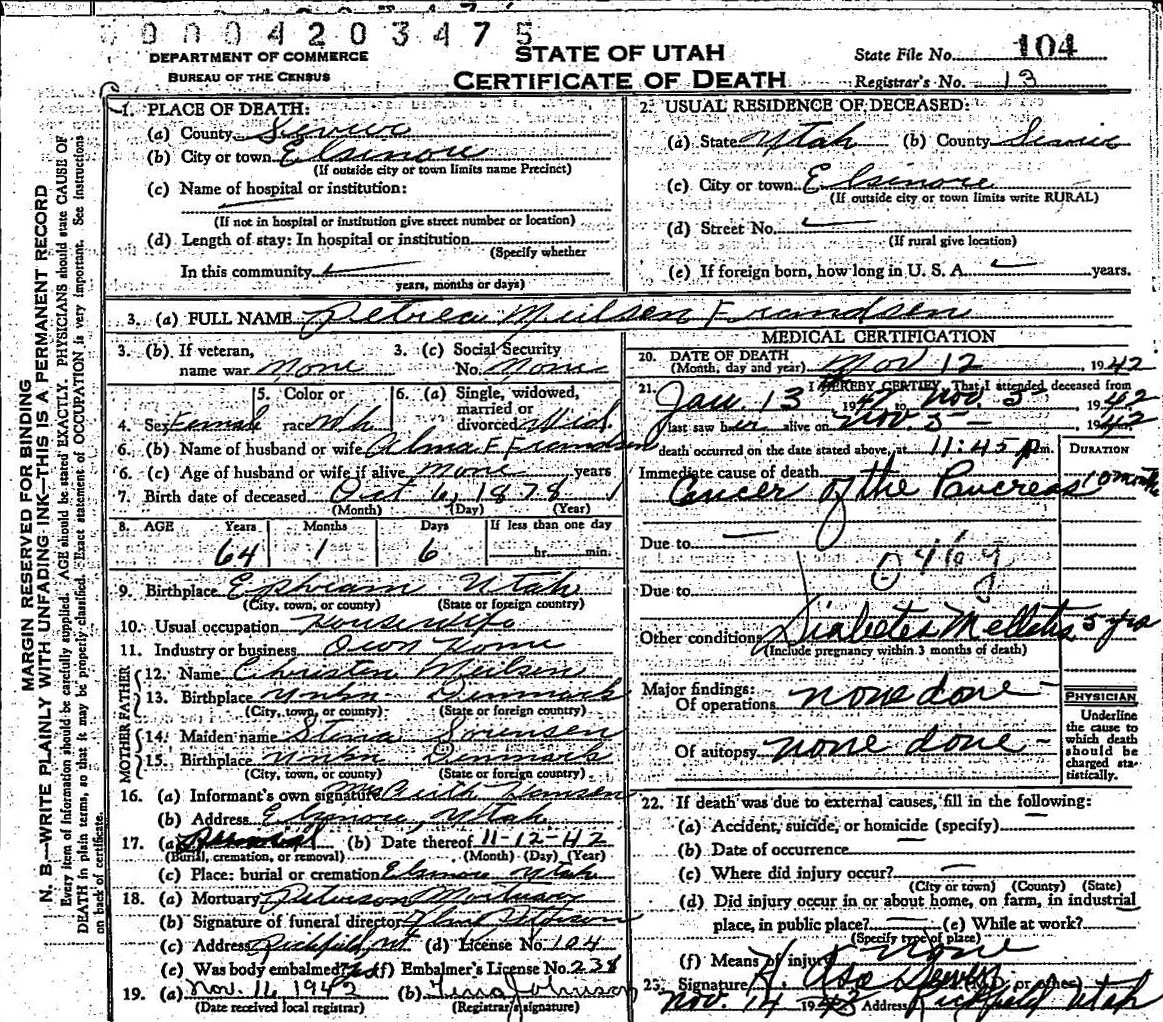 0004203475
DEPARTMENT OF COMMERCE
BUREAU OF THE CENSUS
STATE OF UTAH
CERTIFICATE OF DEATH
State File No. 104
Registrar's No. 13
MARGIN RESERVED FOR BINDING
N. B.—WRITE PLAINLY WITH UNFADING INK—THIS IS A PERMANENT RECORD
Every item of information should be carefully supplied. AGE should be stated EXACTLY. PHYSICIANS should state CAUSE OF
DEATH in plain terms, so that it may be properly classified. Exact statement of OCCUPATION is very important. See instructions
on back of certificate.
1. PLACE OF DEATH:
(a) County Sevier
(b) City or town Elsinore
(If outside city or town limits name Precinct)
(c) Name of hospital or institution:
(If not in hospital or institution give street number or location)
(d) Length of stay: In hospital or institution
(Specify whether
In this community
years, months or days)
2. USUAL RESIDENCE OF DECEASED:
(a) State Utah (b) County Sevier
(c) City or town Elsinore
(If outside city or town limits write RURAL)
(d) Street No.
(If rural give location)
(e) If foreign born, how long in U. S. A. years.
3. (a) FULL NAME Petrea Neilsen Frandsen
3. (b) If veteran, name war None
3. (c) Social Security No. None
4. Sex Female
5. Color or race Wh
6. (a) Single, widowed, married or divorced Wid.
6. (b) Name of husband or wife Alma F Frandsen
6. (c) Age of husband or wife if alive None years
7. Birth date of deceased Oct 6, 1878
(Month) (Day) (Year)
8. AGE Years Months Days If less than one day
64 1 6 hr. min.
9. Birthplace Ephraim Utah
(City, town, or county) (State or foreign country)
10. Usual occupation Housewife
11. Industry or business Own Home
FATHER
12. Name Christen Neilsen
13. Birthplace Unkn Denmark
(City, town, or county) (State or foreign country)
MOTHER
14. Maiden name Stena Sorensen
15. Birthplace Unkn Denmark
(City, town, or county) (State or foreign country)
16. (a) Informant's own signature Mrs Hansen
(b) Address Elsinore, Utah
17. (a) (b) Date thereof 11-12-42
(Burial, cremation, or removal) (Month) (Day) (Year)
(c) Place: burial or cremation Elsinore Utah
18. (a) Mortuary Peterson Mortuary
(b) Signature of funeral director Peterson
(c) Address Richfield, Ut. (d) License No. 104
(e) Was body embalmed? Yes (f) Embalmer's License No. 238
19. (a) Nov. 16, 1942 (b) Tena Johnson
(Date received local registrar) (Registrar's signature)
MEDICAL CERTIFICATION
20. DATE OF DEATH
(Month, day and year) Nov 12 1942
21. I HEREBY CERTIFY, That I attended deceased from
Jan. 13 1942 to Nov. 5 , 1942
last saw her alive on Nov. 5 — , 1942
death occurred on the date stated above, at 11:45 p.m. DURATION
Immediate cause of death
Cancer of the Pancreas 10 months
Due to
046g
Due to
Other conditions Diabetes Melletis 5 yrs
(Include pregnancy within 3 months of death)
Major findings:
Of operations none done
Of autopsy none done
PHYSICIAN
Underline
the cause to
which death
should be
charged sta-
tistically.
22. If death was due to external causes, fill in the following:
(a) Accident, suicide, or homicide (specify)
(b) Date of occurrence
(c) Where did injury occur?
(City or town) (County) (State)
(d) Did injury occur in or about home, on farm, in industrial
place, in public place? (e) While at work?
(Specify type of place)
(f) Means of injury None
23. Signature H. Asa Dewey (M.D. or other)
Nov. 14 1942 Address Richfield Utah